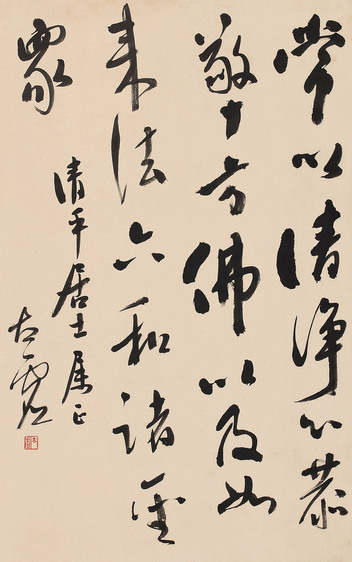 常以清淨心恭
敬十方佛以及如
來法六和諸聖
眾
清平居士屬正
太虛